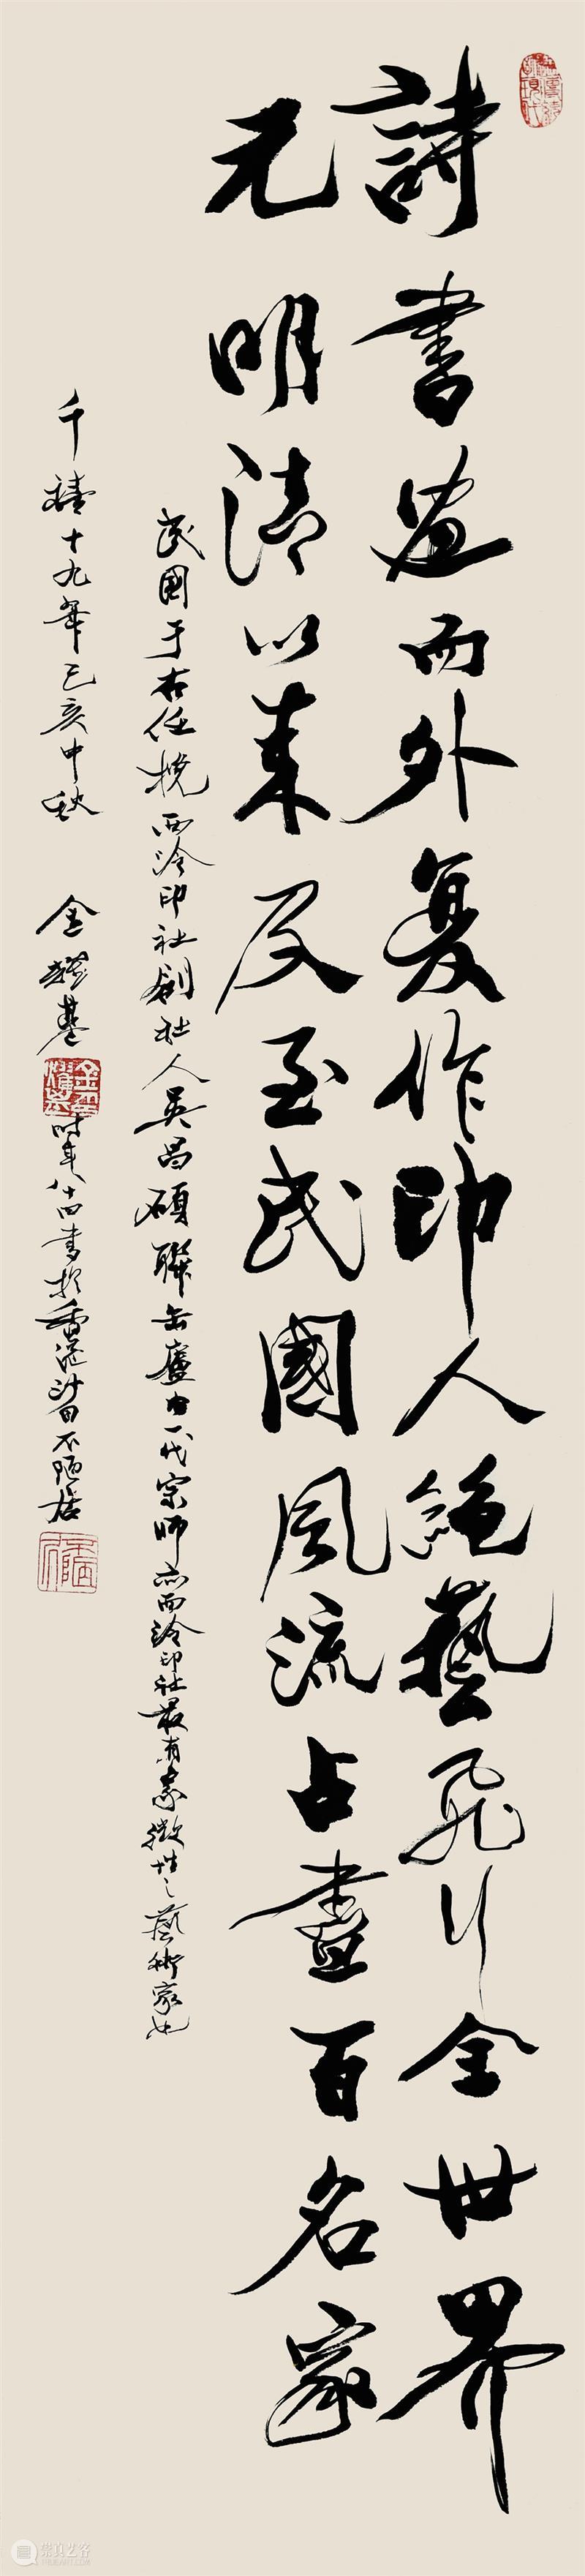 詩書画而外复作印人絕藝飛行全世界
元明清以来及至民國風流占盡百名家
民國于右任挽西泠印社創社人吴昌碩聯缶廬由一代宗師亦西泠印社最有象徵性之藝術家也
千禧十九年己亥中秋 金耀基 時年八十四書於香港沙田不陋居
金耀基
崇真艺客